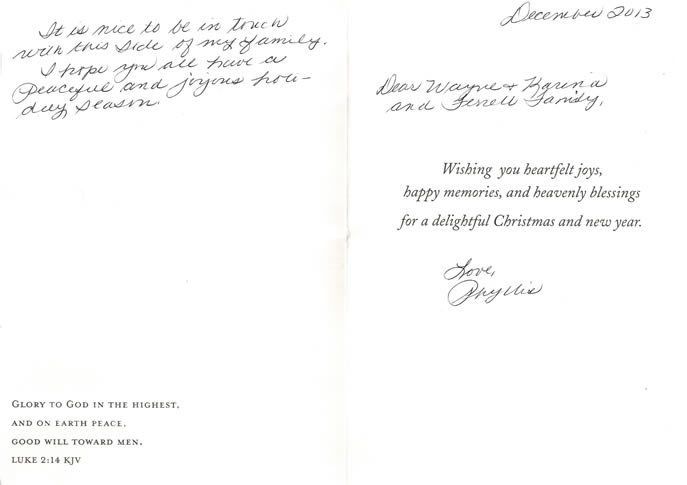 It is nice to be in touch
with this side of my family.
I hope you all have a
Peaceful and joyous holi-
day season.
GLORY TO GOD IN THE HIGHEST,
AND ON EARTH PEACE,
GOOD WILL TOWARD MEN.
LUKE 2:14 KJV
December 2013
Dear Wayne + Karina
and Ferrell Family,
Wishing you heartfelt joys,
happy memories, and heavenly blessings
for a delightful Christmas and new year.
Love,
Phyllis